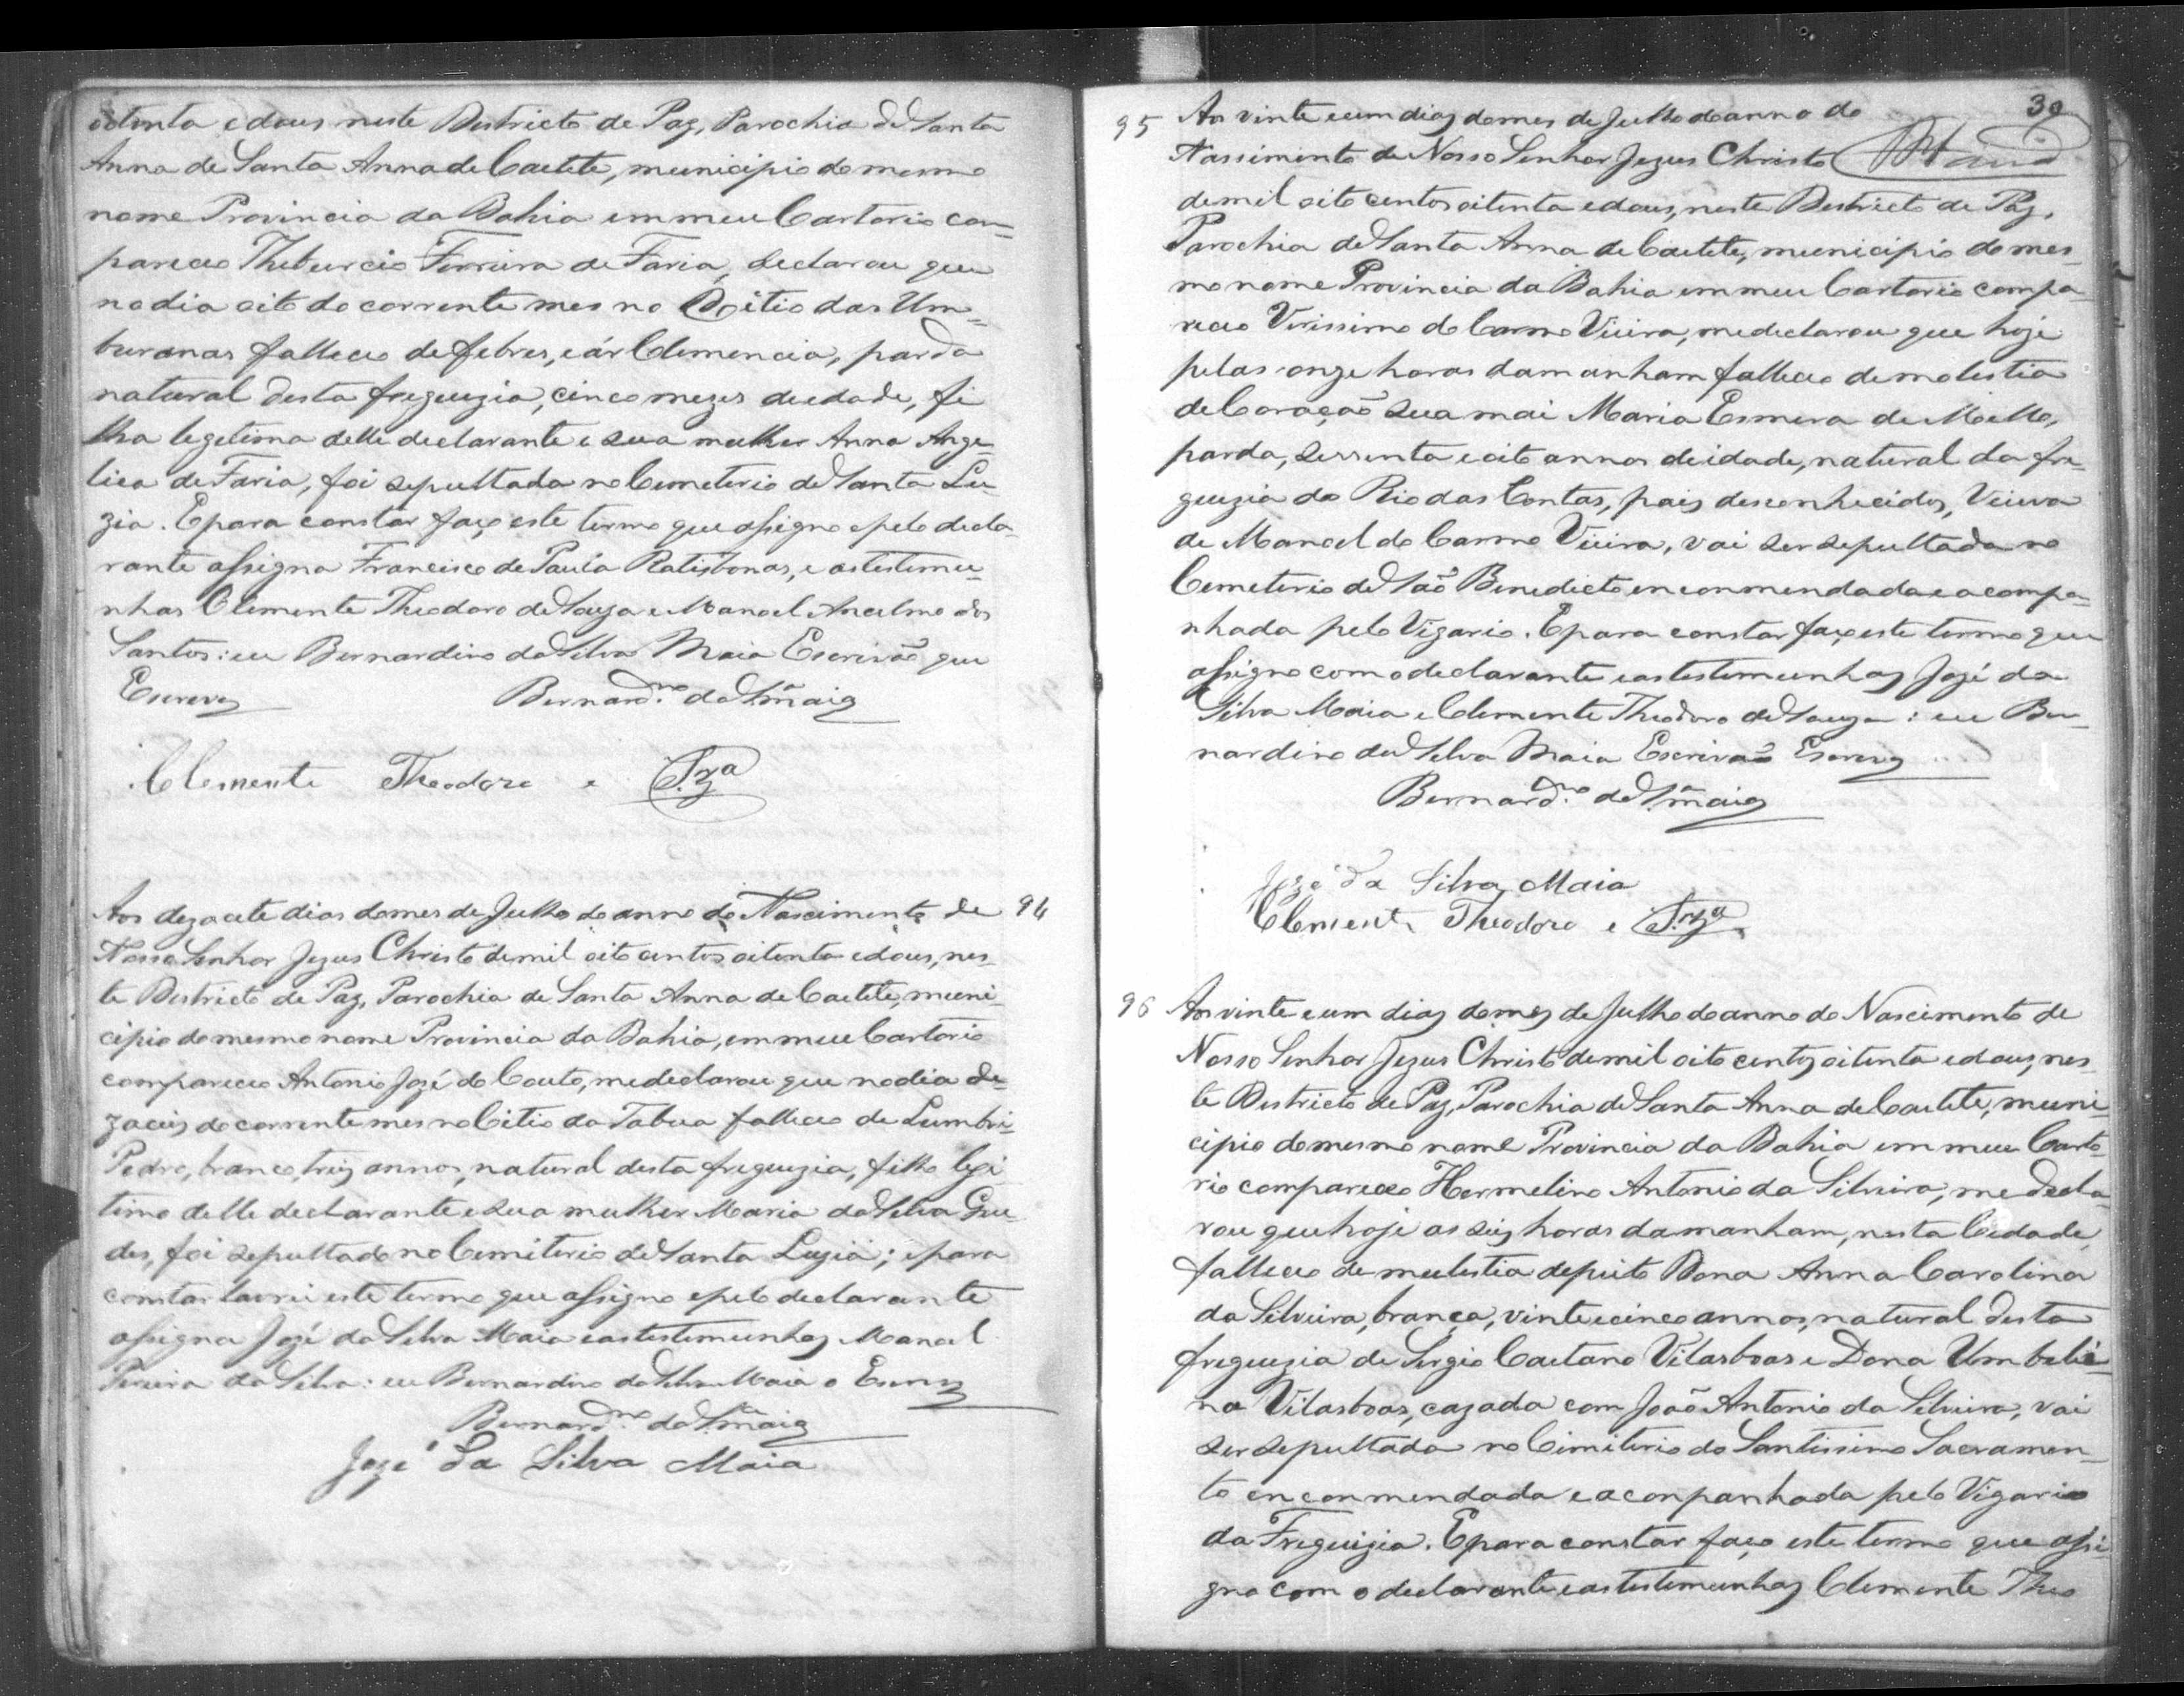 oitenta e dous neste Districto de Paz, Parochia de Santa
Anna de Santa Anna de Caetete, municipio do mesmo
nome Provincia da Bahia em meu Cartorio com=
pareceo Theburcio Ferreira de Faria, declarou que
no dia oito do corrente mes no Citio das Um=
buranas falleceo de febres, e ár Clemencia, parda
natural desta freguezia, cinco mezes de edade, fi
lha legetima delle declarante e sua mulher Anna Ange=
lica de Faria, foi sepultada no Cemeterio de Santa Lu=
zia. E para constar faço este termo que assigno e pelo decla=
rante assigna Francisco de Paula Ratisbonas, e as testemu=
nhas Clemente Theodoro de Souza e Manoel Ancelmo dos
Santos: eu Bernardino da Silva Maia Escrivaõ que
Escrevy
Bernard.no da S.ª Maia
Clemente Theodoro e Sz.ª
94
Aos dezacete dias do mes de Julho do anno do Nascimento de
Nosso Senhor Jezus Christo de mil oito centos oitenta e dous, nes=
te Districto de Paz, Parochia de Santa Anna de Caetete, muni=
cipio do mesmo nome Provincia da Bahia, em meu Cartorio
compareceo Antonio Jozé do Couto, me declarou que no dia de=
zaceis do corrente mes no Citio da Tabua falleceo de Lumbri=
Pedro, branco, tres annos, natural desta freguezia, filho legi
timo delle declarante e sua mulher Maria da Silva Gue=
des, foi sepultado no Cemiterio de Santa Luzia; e para
constar lavrei este termo que assigno e pelo declarante
assigna Jozé da Silva Maia e as testemunhas Manoel
Pereira da Silva: eu Bernardino da Silva Maia o Escrevy
Bernard.no da S.ª Maia
Jozé da Silva Maia
30
95
Aos vinte e um dias do mes de Julho do anno do
Nassimento de Nosso Senhor Jezus Christo
de mil oito centos oitenta e dous, neste Destricto de Paz,
Parochia de Santa Anna de Caetete, municipio do mes=
mo nome Provincia da Bahia em meu Cartorio compa=
receo Virissimo do Carmo Vieira, me declarou que hoje
pelas onze horas da manham falleceo de molestia
de Coraçaõ sua mai Maria Esmera de Mello,
parda, sessenta e oito annos de idade, natural da fre=
guezia do Rio das Contas, pais desconhecidos, Viuva
de Manoel do Carmo Vieira, vai ser sepultada no
Cemeterio de Saõ Benedicto enconmendada e acompa=
nhada pelo Vigario. E para constar faço este termo que
assigno com o declarante e as testemunhas Jozé da
Silva Maia e Clemente Theodoro de Souza: eu Ber=
nardino da Silva Maia Escrivaõ Escrevy
Bernard.no da S.ª Maia
Jozé da Silva Maia
Clement. Theodoro e Sz.ª
96
Aos vinte e um dias do mes de Julho do anno do Nascimento de
Nosso Senhor Jezus Christo de mil oito centos oitenta e dous, nes=
te Destricto de Paz, Parochia de Santa Anna de Caetete, muni=
cipio do mesmo nome Provincia da Bahia em meu Carto=
rio compareceo Hermelino Antonio da Silveira, me decla=
rou que hoje as seis horas da manham, nesta Cidade,
falleceo de mulestia de peito Dona Anna Carolina
da Silveira, branca, vinte e cinco annos, natural desta
freguezia de Sergio Caetano Vilasboas e Dona Umbeli=
na Vilasboas, cazada com Joaõ Antonio da Silveira, vai
ser sepultada no Cimiterio do Santissimo Sacramen=
to enconmendada e aconpanhada pelo Vigario
da Freguizia. E para constar faço este termo que assi=
gno com o declarante e as testemunhas Clemente Theo